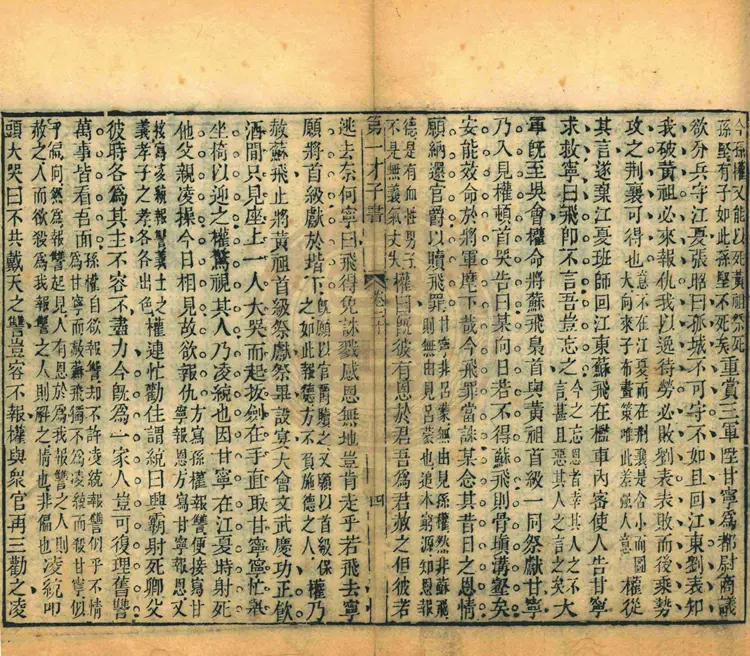 今孫權又能以死黃祖祭死
孫堅有子如此孫堅不死矣
重賞三軍陞甘寧為都尉商議
欲分兵守江夏張昭曰孤城不可守不如且回江東劉表知
我破黃祖必來報仇我以逸待勞必敗劉表表敗而後乘勢
攻之荊襄可得也
意不在江夏而在荊襄是舍小而圖
大向來子布畫策唯此差強人意
權從
其言遂棄江夏班師回江東蘇飛在檻車內密使人告甘寧
求救寧曰飛即不言吾豈忘之
今之忘恩者幸其人之不
言甚且惡其人之言之矣
大
軍既至吳會權命將蘇飛梟首與黃祖首級一同祭獻甘寧
乃入見權頓首哭告曰某向日若不得蘇飛則骨填溝壑矣
安能效命於將軍麾下哉今飛罪當誅某念其昔日之恩情
願納還官爵以贖飛罪
甘寧非呂蒙無由見孫權然非蘇飛
則無由見呂蒙也追本窮源知恩報
德是有血性男子
不是無義氣丈夫
權曰既彼有恩於君吾為君赦之但彼若
第一才子書
卷二十
四
逃去奈何寧曰飛得免誅戮感恩無地豈肯走乎若飛去寧
願將首級獻於堦下
既願以官爵贖之又願以首級保
之如此報德方不負施德之人
權乃
赦蘇飛止將黃祖首級祭獻祭畢設宴大會文武慶功正飲
酒間只見座上一人大哭而起拔劍在手直取甘寧寧忙舉
坐椅以迎之權驚視其人乃凌統也因甘寧在江夏時射死
他父親凌操今日相見故欲報仇
方寫孫權報讐便接寫甘
寧報恩方寫甘寧報恩又
接寫凌統報讐義士之
義孝子之孝各各出色
權連忙勸住謂統曰興霸射死卿父
彼時各為其主不容不盡力今既為一家人豈可復理舊讐
萬事皆看吾面
孫權自欲報讐却不許凌統報讐似乎不情
為甘寧而赦蘇飛獨不為凌統而殺甘寧似
乎偏向然為報讐起見人有恩於為我報讐之人則
赦之人而欲殺為我報讐之人則解之情也非偏也
凌統叩
頭大哭曰不共戴天之讐豈容不報權與衆官再三勸之凌